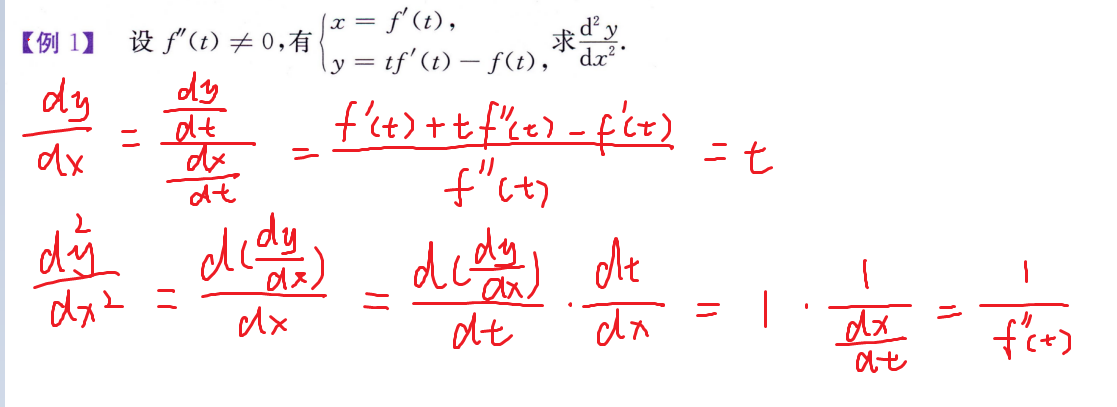 【例 1】 设 f″(t) ≠ 0,有 { x = f′(t), y = tf′(t) − f(t), 求 d²y/dx².
dy/dx = (dy/dt)/(dx/dt) = (f′(t) + t f″(t) − f′(t))/f″(t) = t
d²y/dx² = d(dy/dx)/dx = d(dy/dx)/dt · dt/dx = 1 · 1/(dx/dt) = 1/f″(t)